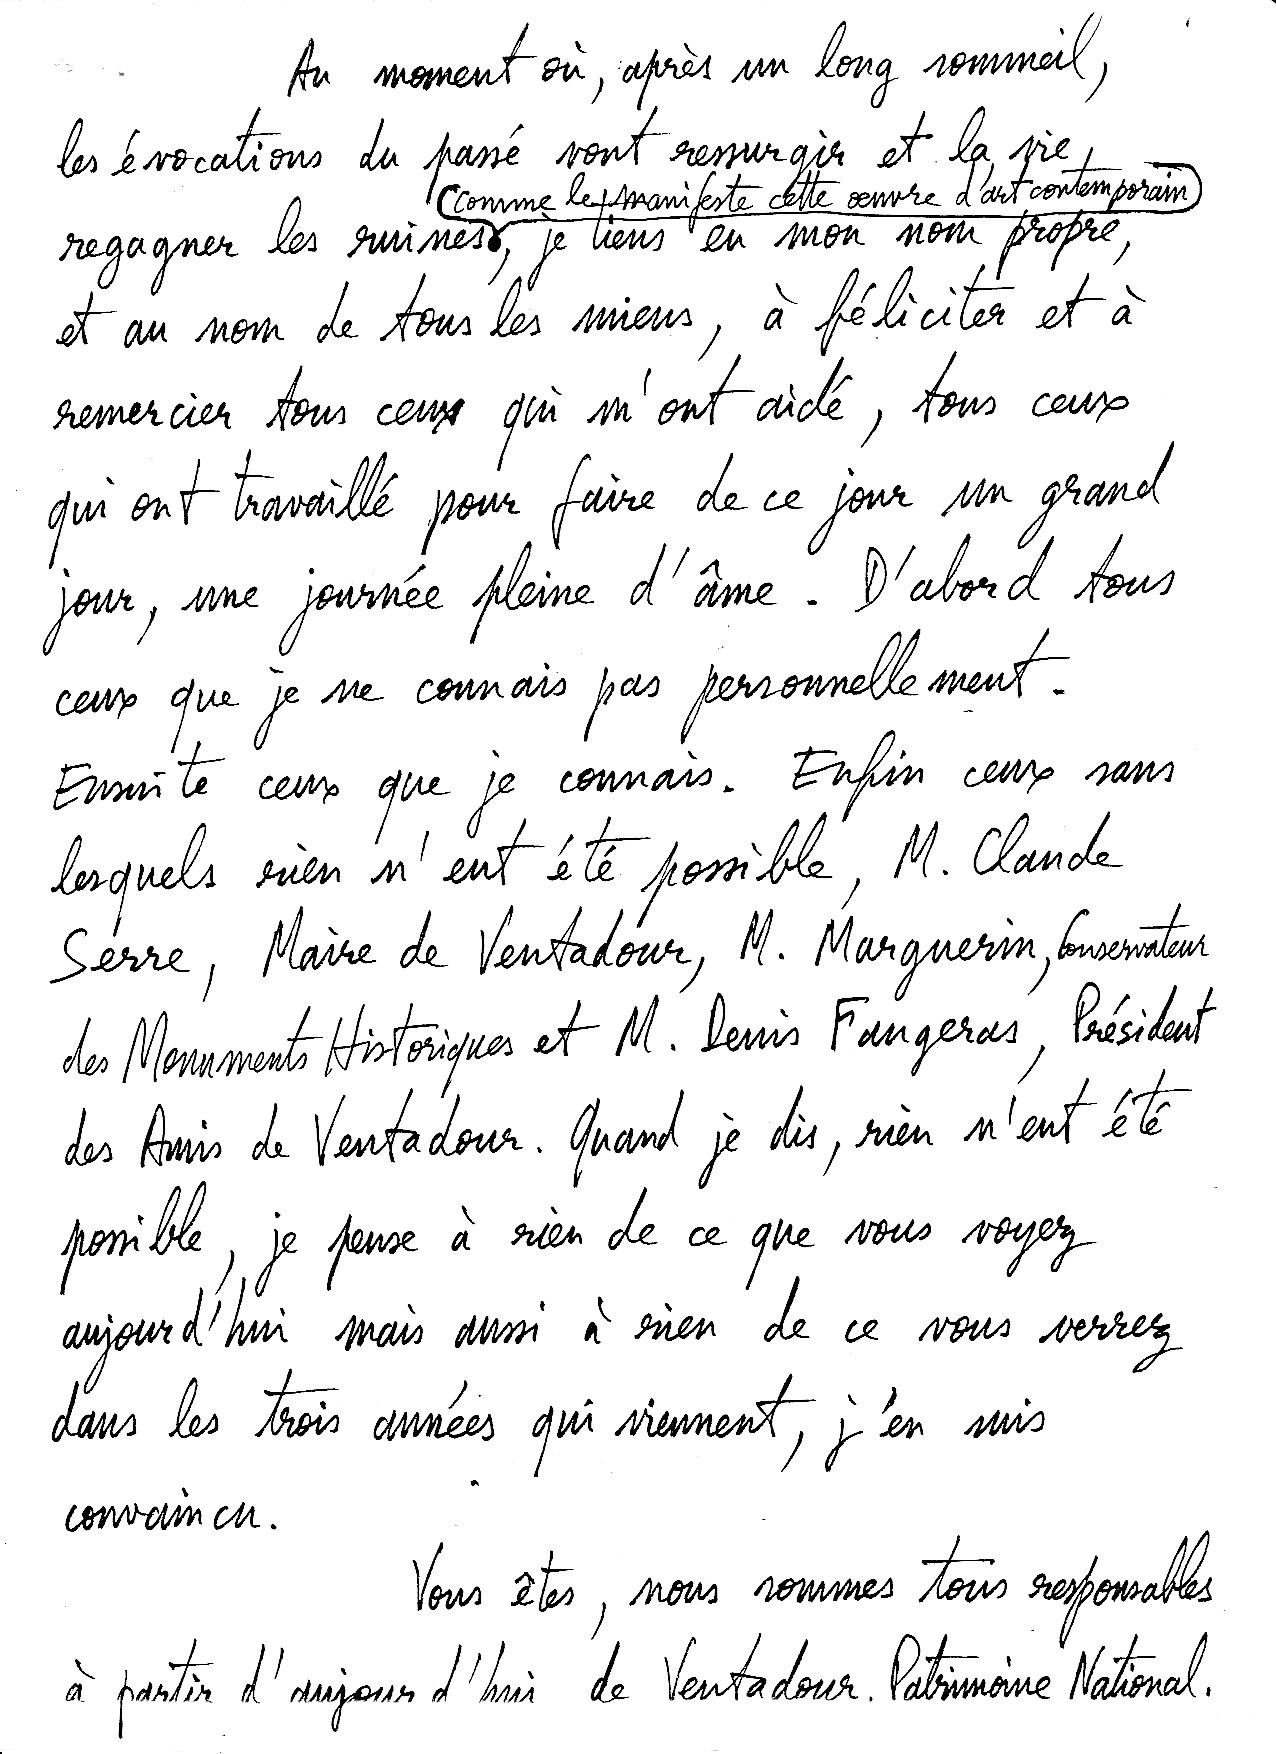 Au moment où, après un long sommeil,
les évocations du passé vont ressurgir et la vie,
(comme le manifeste cette œuvre d'art contemporain)
regagner les ruines, je tiens en mon nom propre,
et au nom de tous les miens, à féliciter et à
remercier tous ceux qui m'ont aidé, tous ceux
qui ont travaillé pour faire de ce jour un grand
jour, une journée pleine d'âme. D'abord tous
ceux que je ne connais pas personnellement.
Ensuite ceux que je connais. Enfin ceux sans
lesquels rien n'eut été possible, M. Claude
Serre, Maire de Ventadour, M. Marguerin, Conservateur
des Monuments Historiques et M. Denis Faugeras, Président
des Amis de Ventadour. Quand je dis, rien n'eut été
possible, je pense à rien de ce que vous voyez
aujourd'hui mais aussi à rien de ce vous verrez
dans les trois années qui viennent, j'en suis
convaincu.
Vous êtes, nous sommes tous responsables
à partir d'aujourd'hui de Ventadour. Patrimoine National.